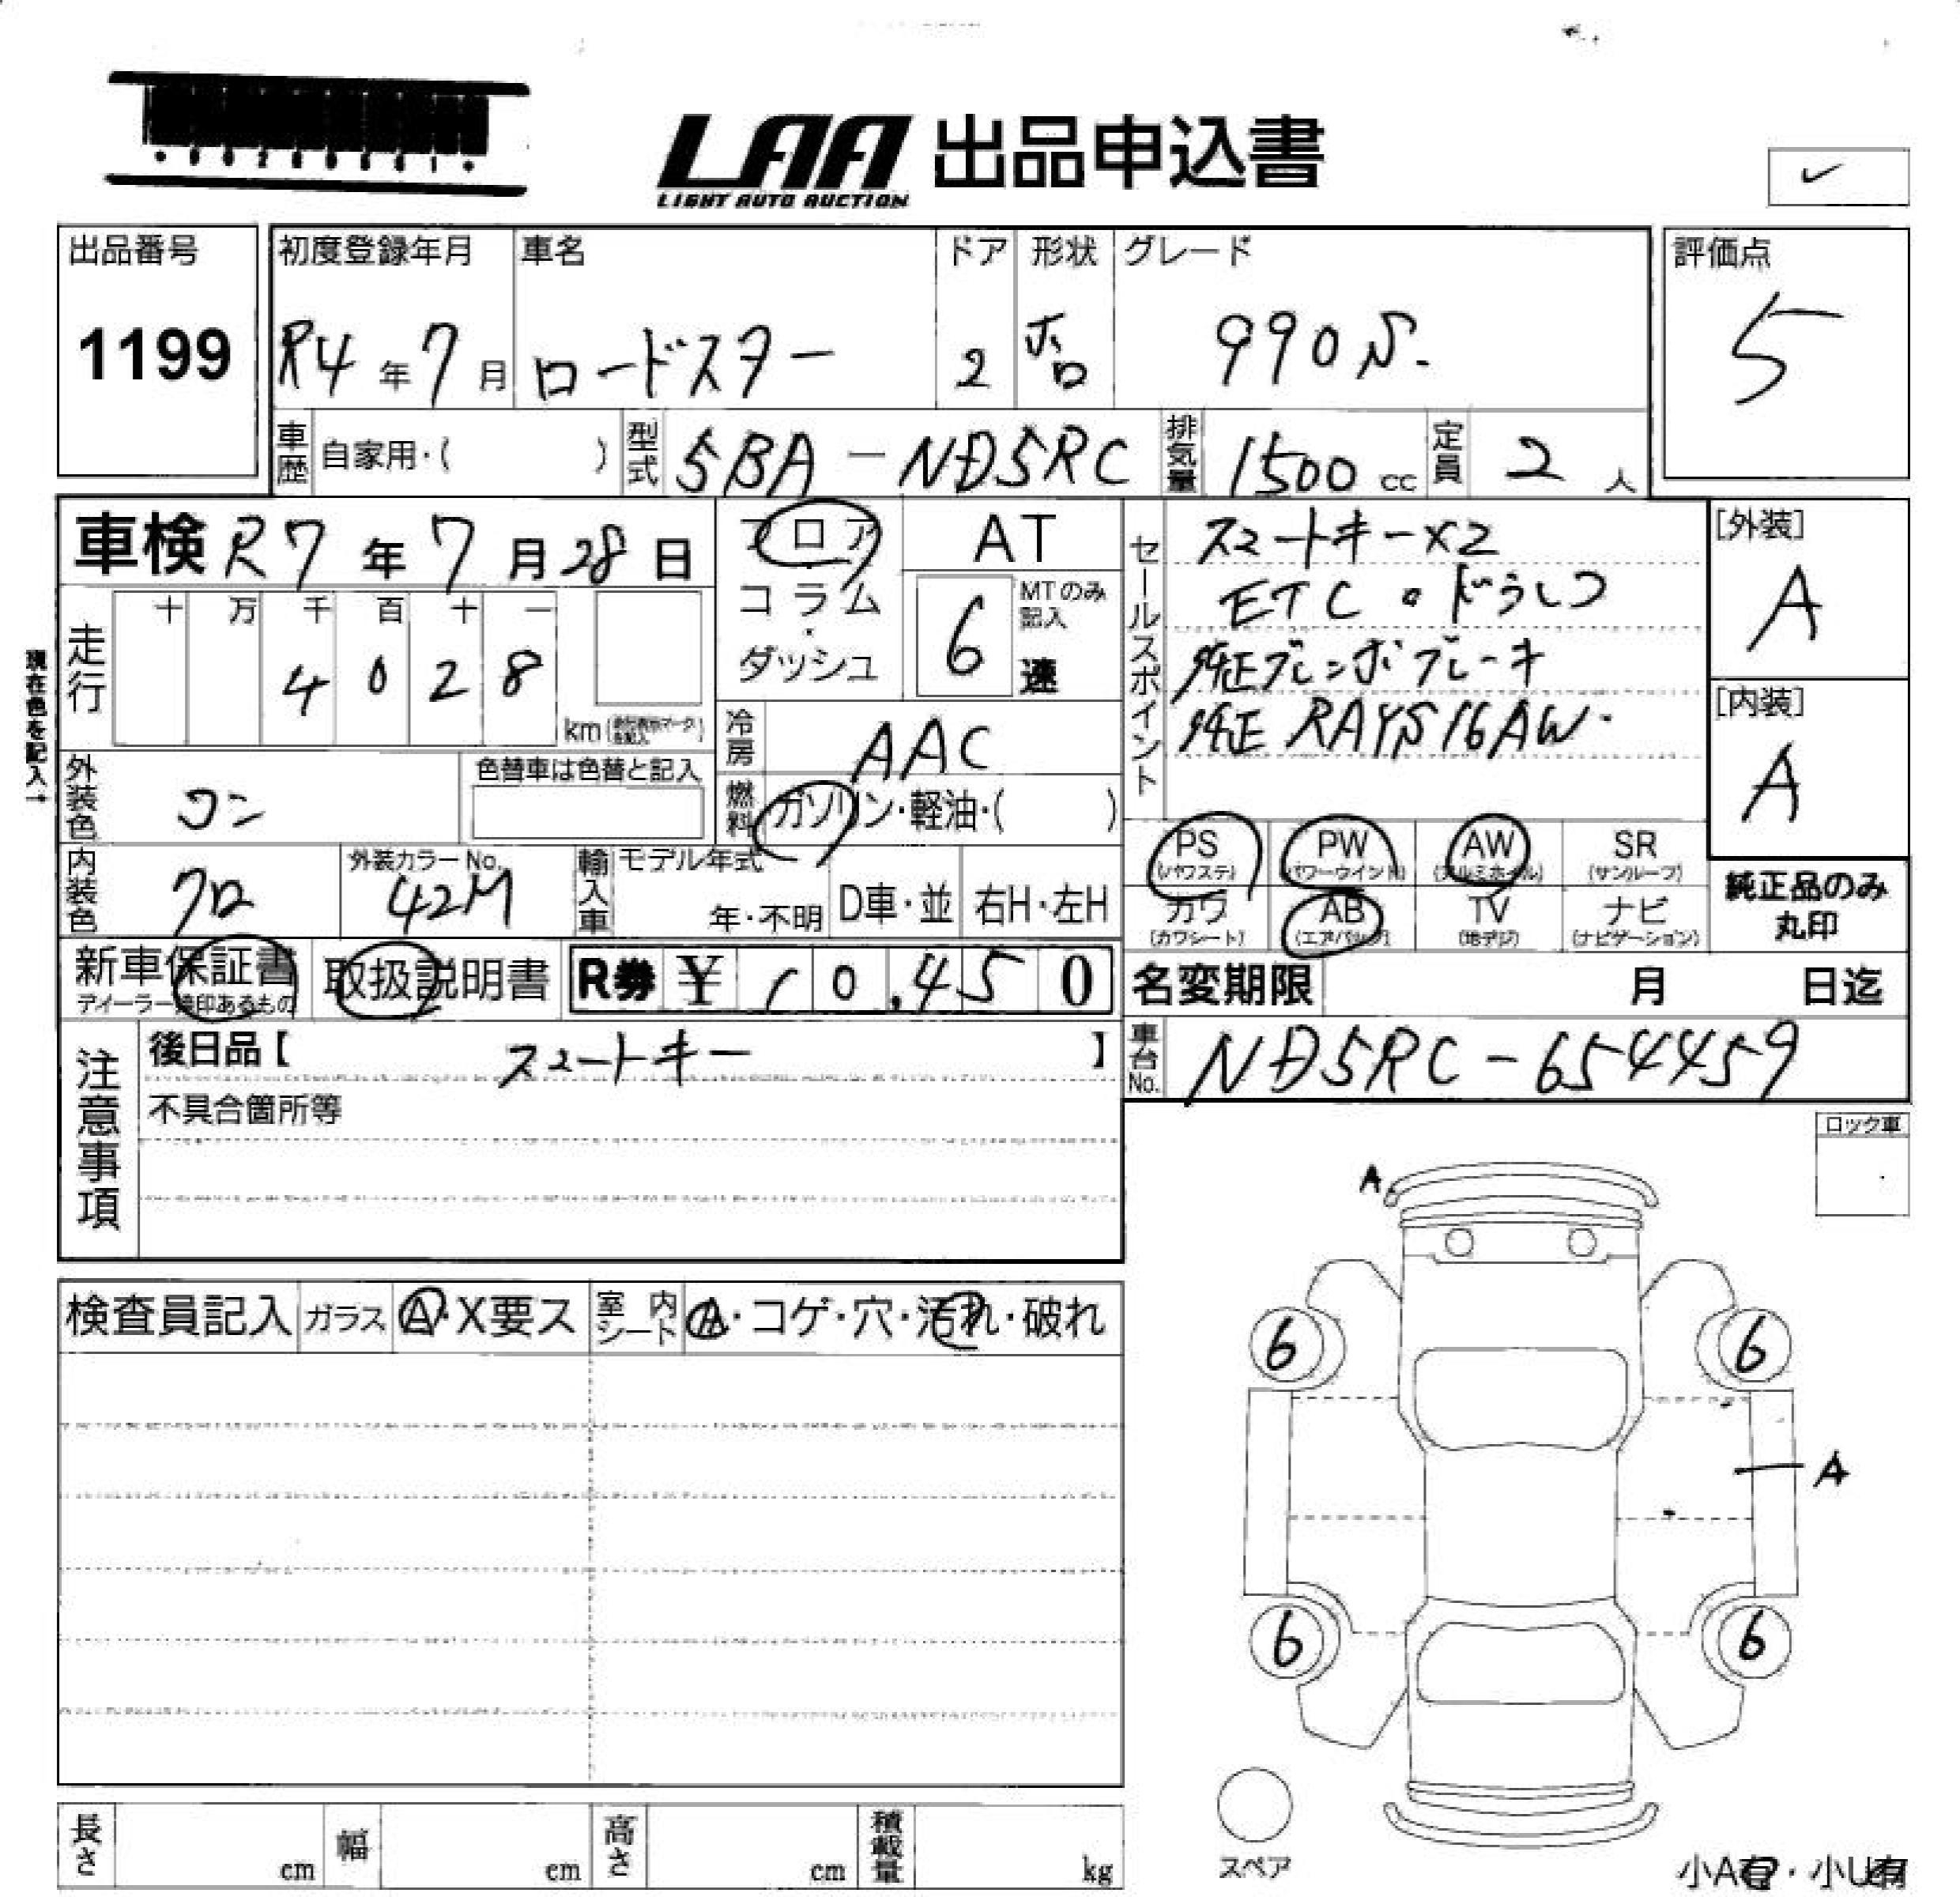 LAA 出品申込書
LIGHT AUTO AUCTION
出品番号
1199
初度登録年月
R4年7月
車名
ロードスター
ドア
2
形状
ホロ
グレード
990S.
評価点
5
車歴 自家用・( )
型式 5BA-ND5RC
排気量 1500cc
定員 2人
車検 R7年7月28日
フロア
コラム
・
ダッシュ
AT
6
MTのみ
記入
速
セールスポイント
スマートキー×2
ETC・ドラレコ
純正ブレンボブレーキ
純正RAYS16AW.
[外装]
A
[内装]
A
現在色を記入→
走行
十 万 千 百 十 一
4 0 2 8
km
冷房 AAC
燃料 ガソリン・軽油・( )
外装色 コン
色替車は色替と記入
内装色 クロ
外装カラーNo.
42M
輸入車
モデル年式
年・不明
D車・並
右H・左H
PS
(パワステ)
PW
(パワーウインド)
AW
(アルミホイル)
SR
(サンルーフ)
カワ
(カワシート)
AB
(エアバッグ)
TV
(地デジ)
ナビ
(ナビゲーション)
純正品のみ
丸印
新車保証書
ディーラー捺印あるもの
取扱説明書
R券 ¥ 10,450
名変期限 月 日迄
車台No. ND5RC-654459
注意事項
後日品【 スマートキー 】
不具合箇所等
ロック車
検査員記入
ガラス Ⓐ・X要ス
室内シート Ⓐ・コゲ・穴・汚れ・破れ
A
6
6
A
6
6
スペア
長さ cm
幅 cm
高さ cm
積載量 kg
小A有・小U有